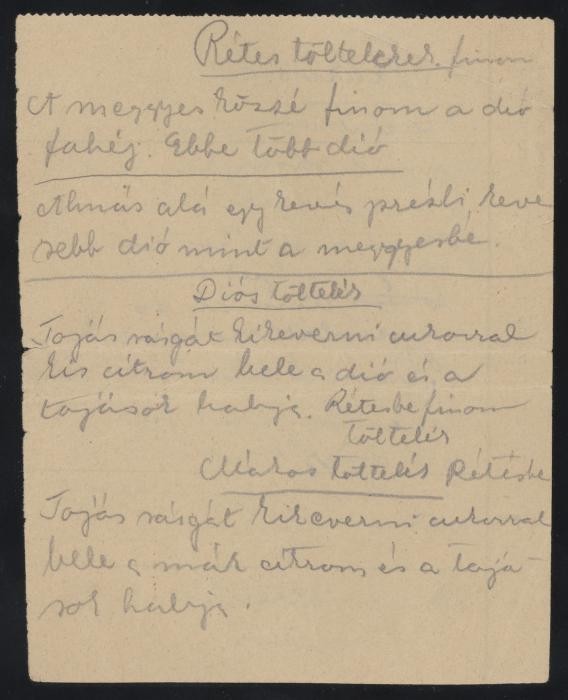 Rétes töltelékek. finom
A meggyes közzé finom a dió
fahéj. Ebbe több dió
Almás alá egy kevés prézli keve
sebb dió mint a meggyesbe.
Diós töltelék
Tojás sárgát kikeverni cukorral
kis citrom bele a dió és a
tojások habja. Rétesbe finom
töltelék
Mákos töltelék Rétesbe
Tojás sárgát kikeverni cukorral
bele a mák citrom és a tojá-
sok habja.